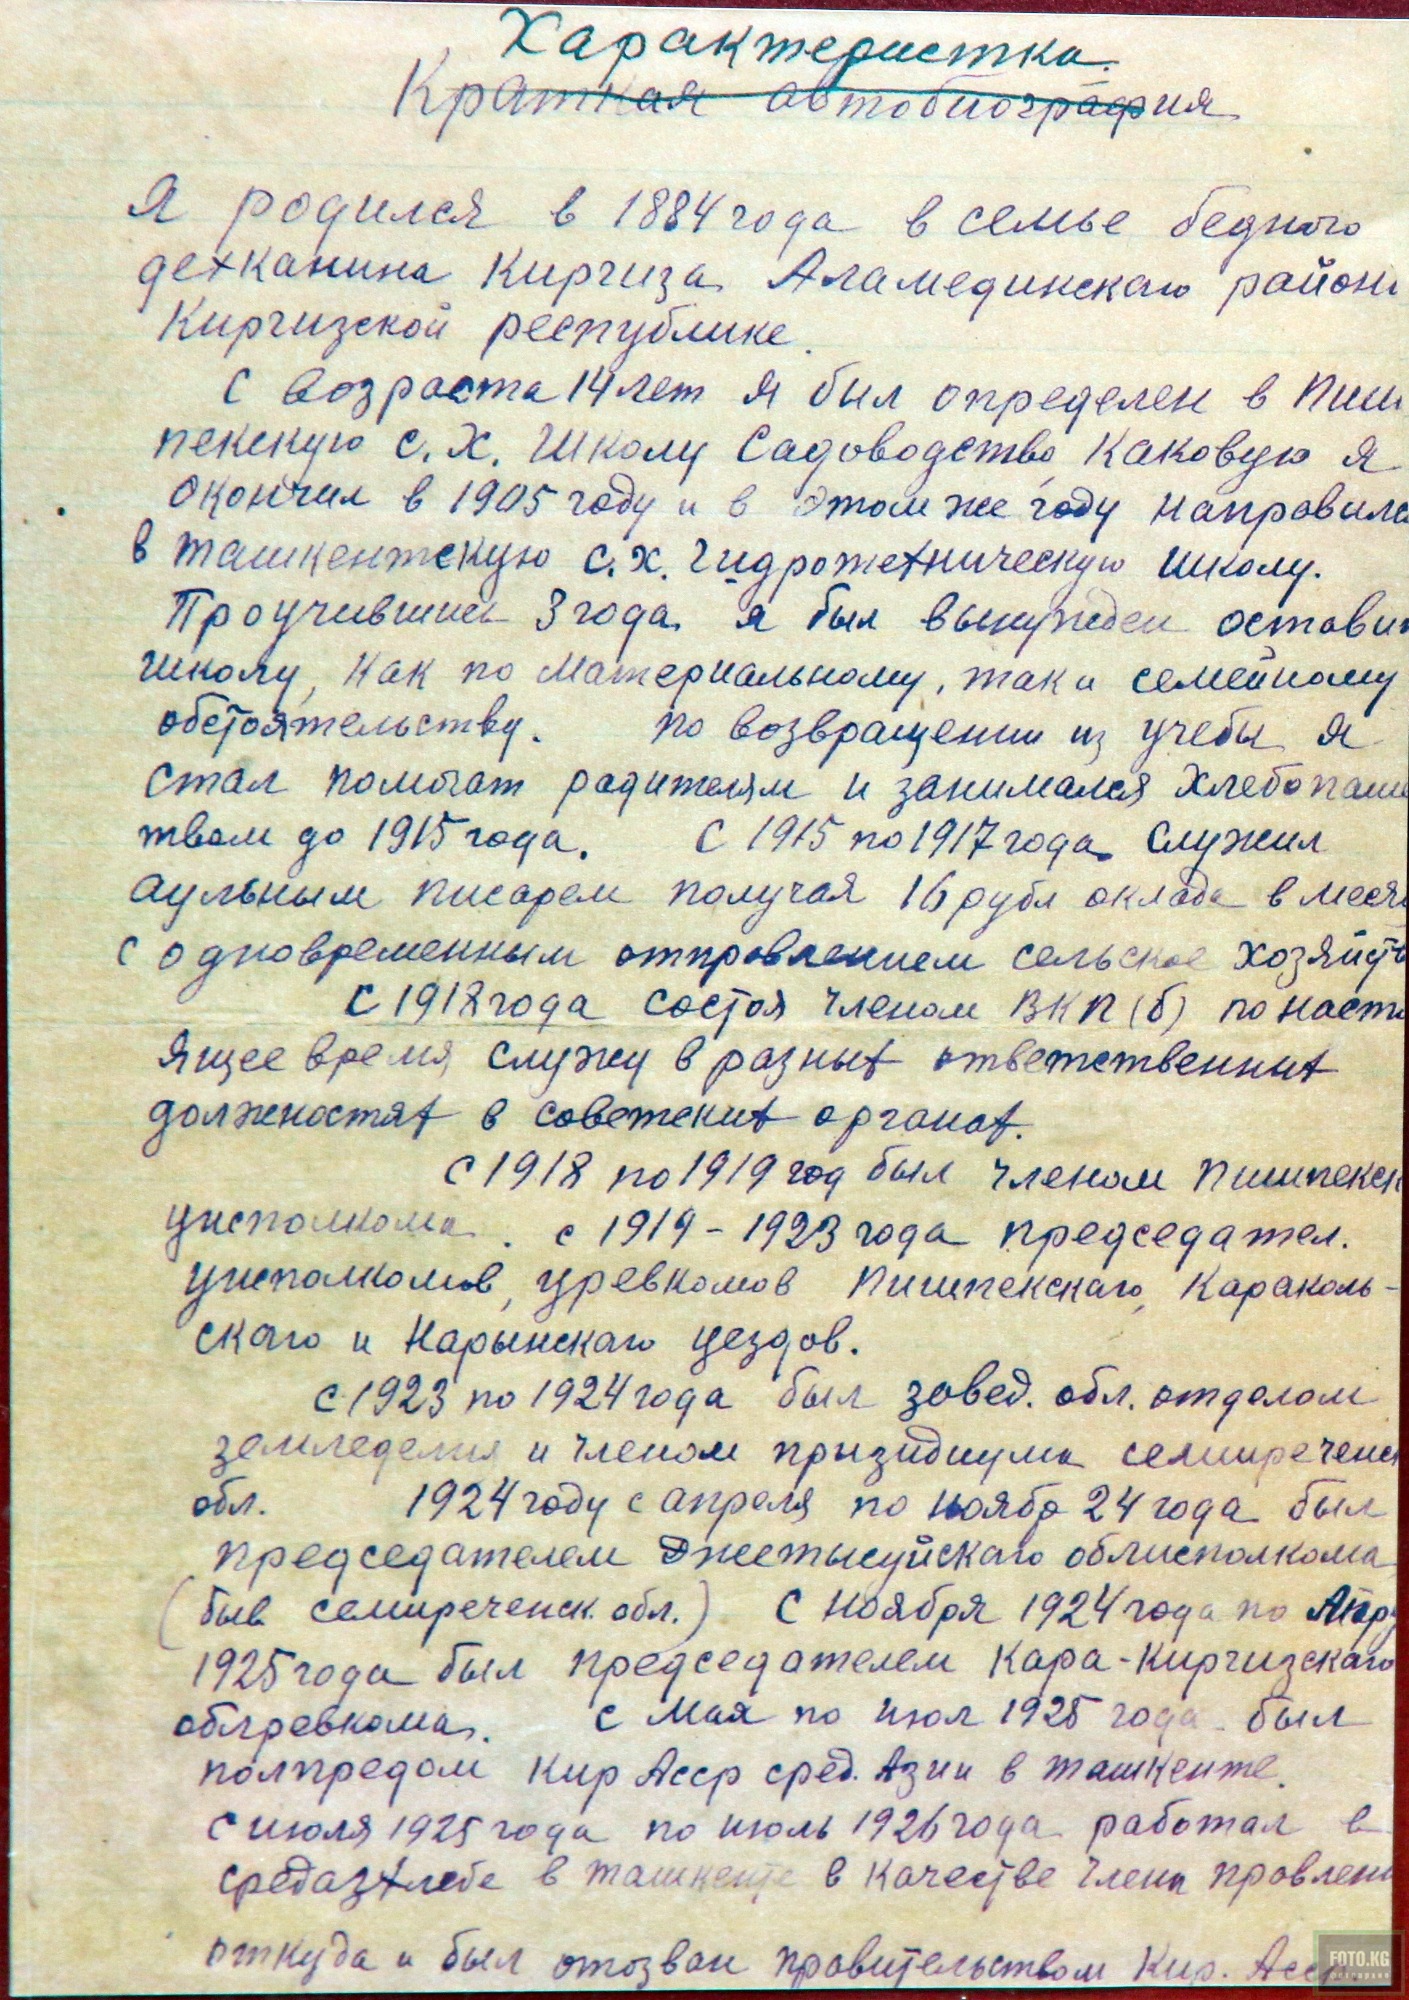 Характеристика.
Краткая автобиография
Я родился в 1884 года в семье бедного
дехканина Киргиза Аламединскаго район
Киргизской республике.
С возраста 14 лет я был определен в Пиш
пекскую с.х. школу Садоводство, каковую я
окончил в 1905 году и в этом же году направилс
в ташкентскую с.х. гидротехническую школу.
Проучившись 3 года я был вынужден остави
школу, как по материальному, так и семейному
обстоятельству. по возвращении из учебы я
стал помогат радителям и занимался хлебопаше
твом до 1915 года. С 1915 по 1917 года служил
аульным писарем получая 16 рубл оклада в меся
с одновременным отправлением сельское хозяйств
С 1918 года состоя членом ВКП(б) по насто
ящее время служу в разных ответственных
должностях в советских органах.
С 1918 по 1919 год был членом Пишпекск
уисполкома. с 1919-1923 года председател.
уисполкомов, уревкомов Пишпекскаго, Караколь-
скаго и Нарынскаго уездов.
с 1923 по 1924 года был завед. обл. отделом
земледелия и членом призидиума семиреченск
обл. 1924 году с апреля по ноябр 24 года был
председателем Джетысуйскаго облисполкома
(быв семиреченск. обл.) С Ноября 1924 года по Апр
1925 года был председателем Кара-Киргизскаго
облревкома. с Мая по июл 1925 года был
полпредом Кир Асср сред. Азии в ташкенте.
с июля 1925 года по июль 1926 года работал в
средазхлебе в ташкенте в качестве члена правлен
откуда и был отозван правительством Кир. Асср.
FOTO.KG